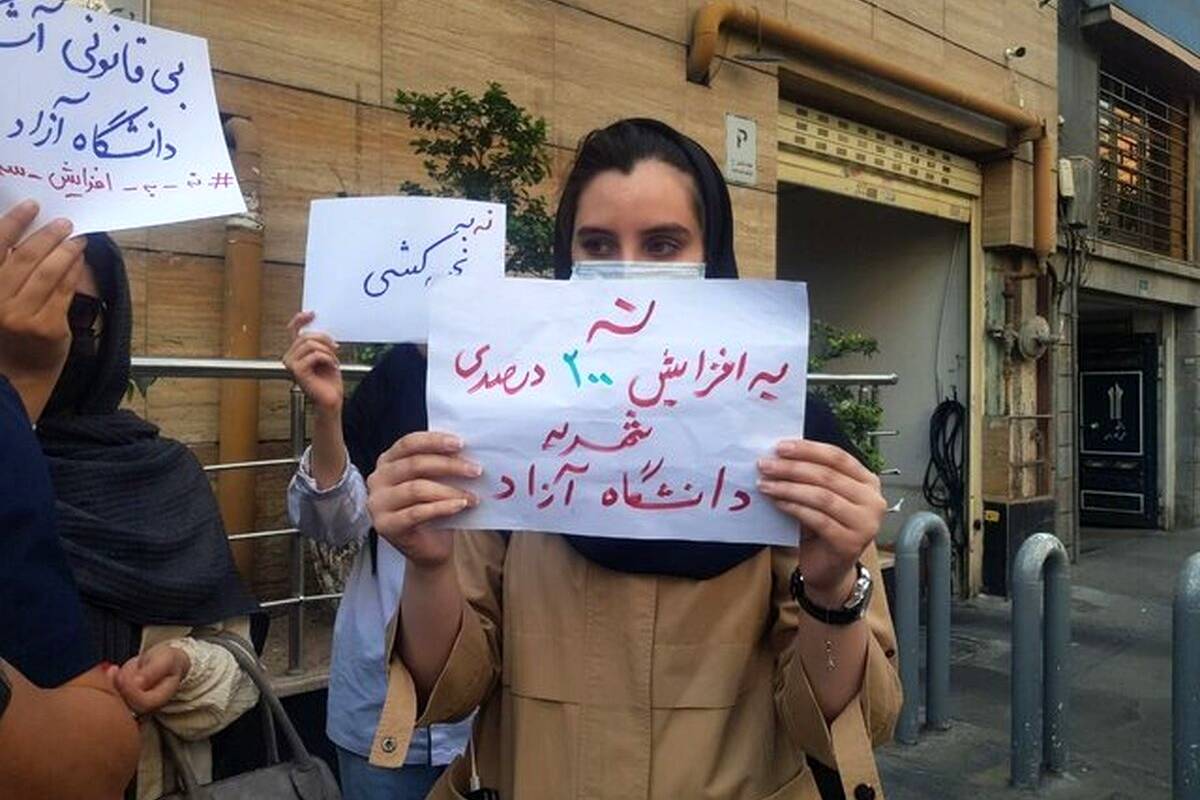 بی قانونی
دانشگاه آزاد
#نه_به_افزایش_
نه به
نخبه کشی
نه
به افزایش ۲۰۰ درصدی
شهریه
دانشگاه آزاد